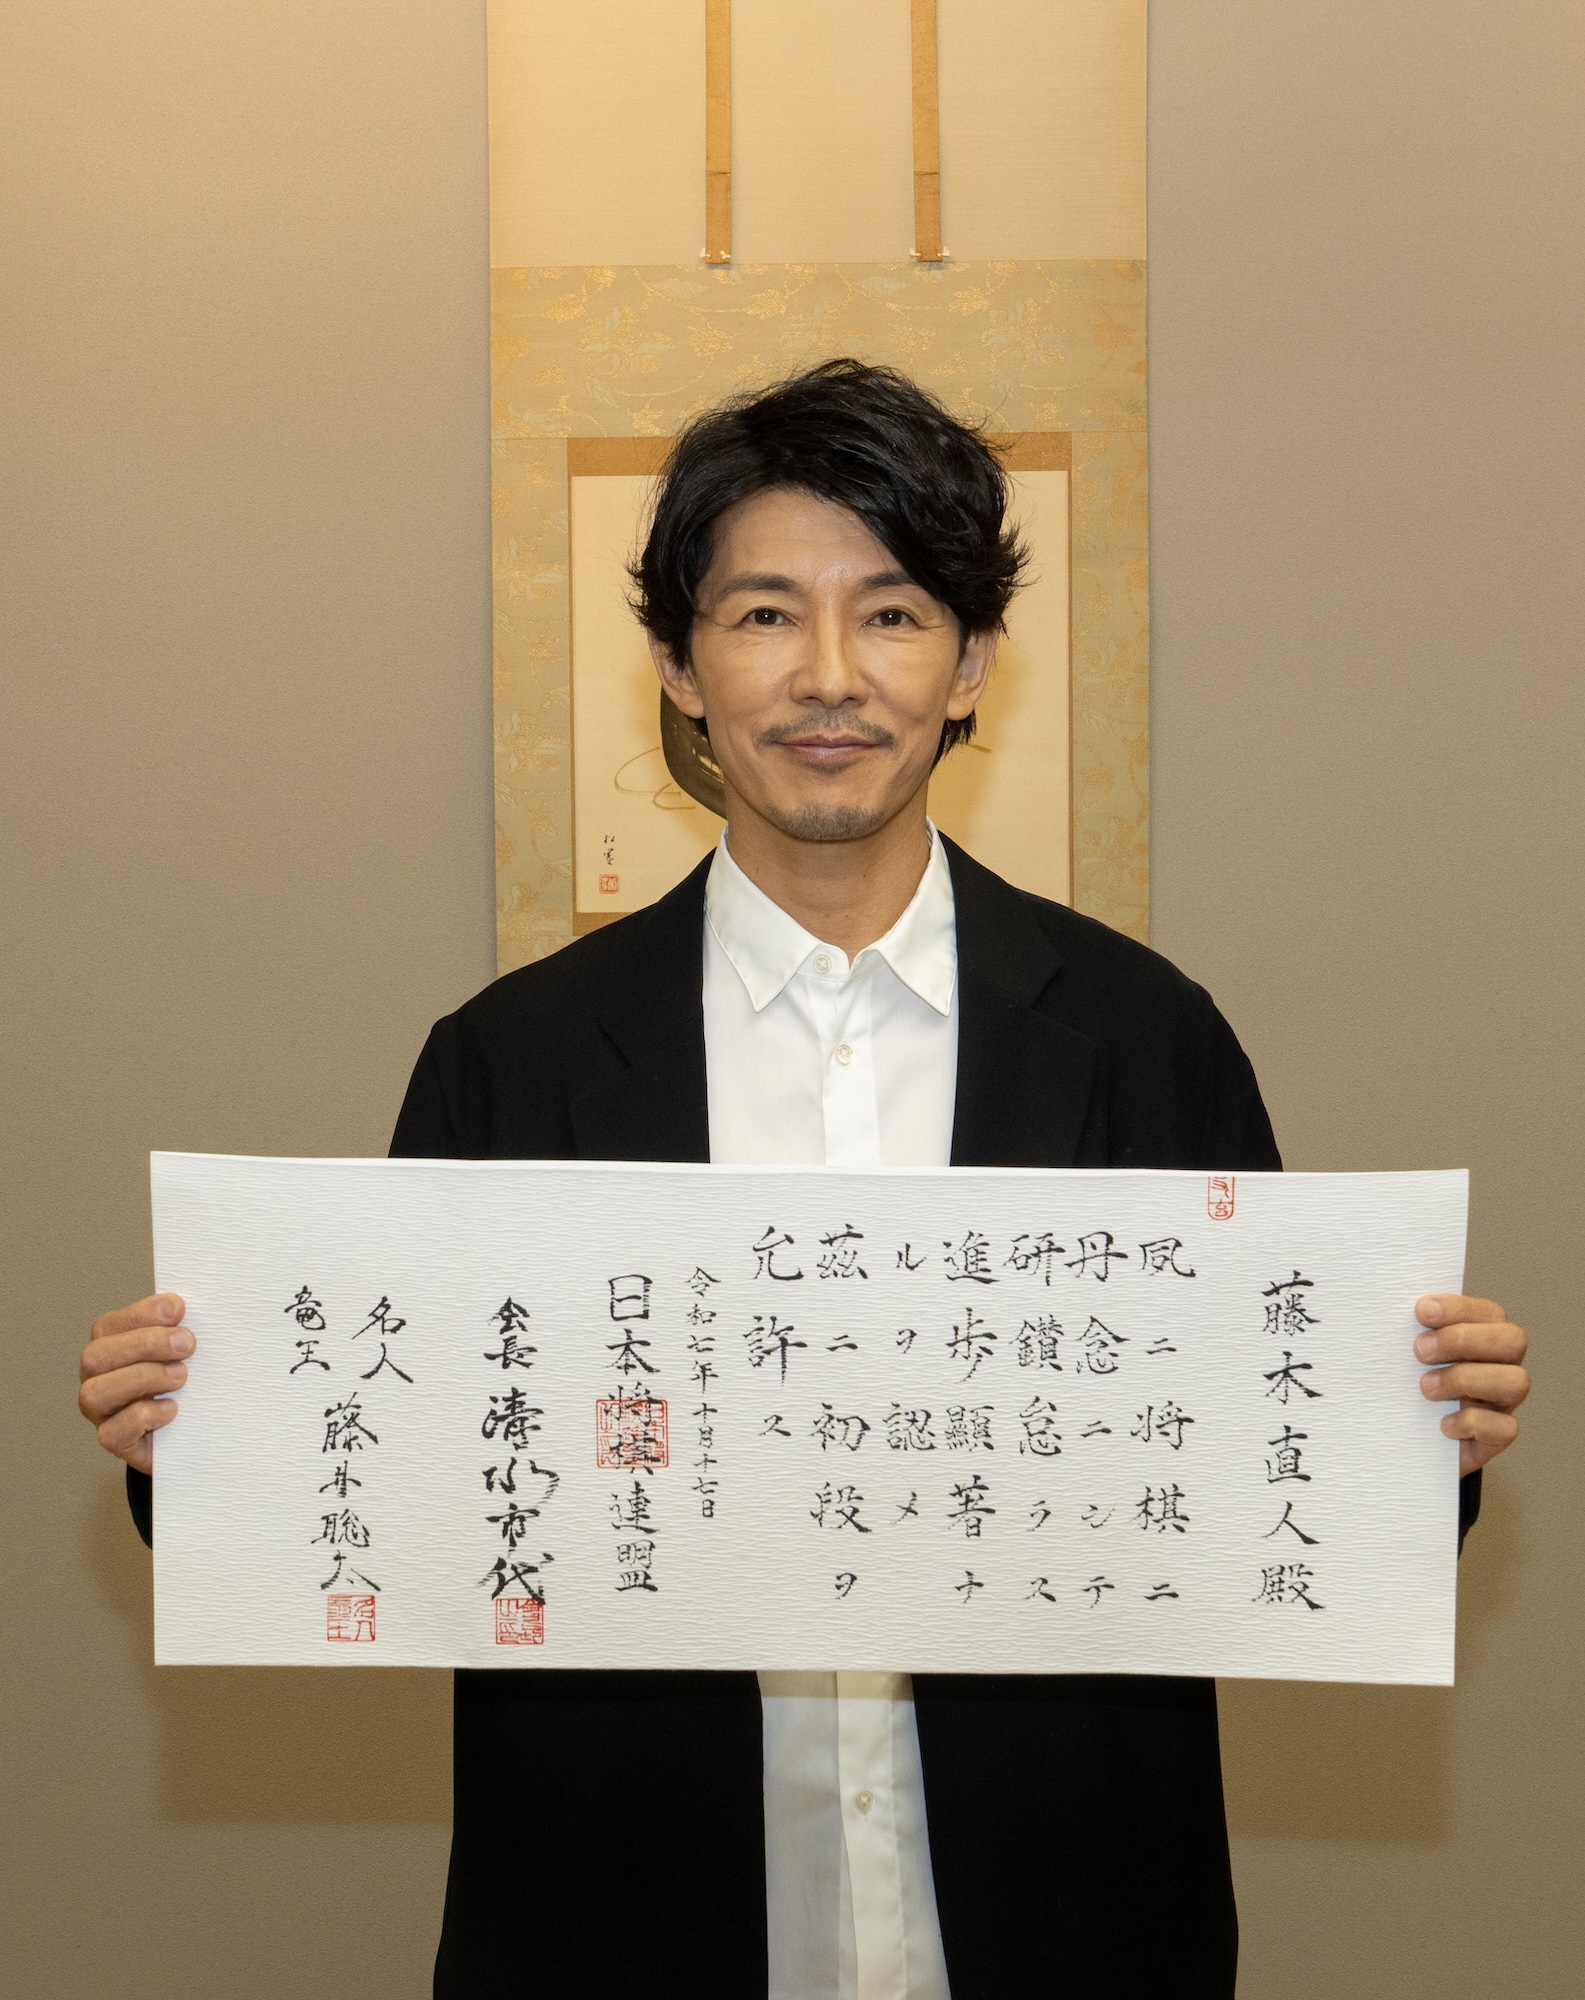 藤木直人殿
夙ニ将棋ニ
丹念ニシテ
研鑽怠ラス
進歩顯著ナ
ルヲ認メ
茲ニ初段ヲ
允許ス
令和七年十月十七日
日本将棋連盟
会長 清水市代
名人
竜王
藤井聡太